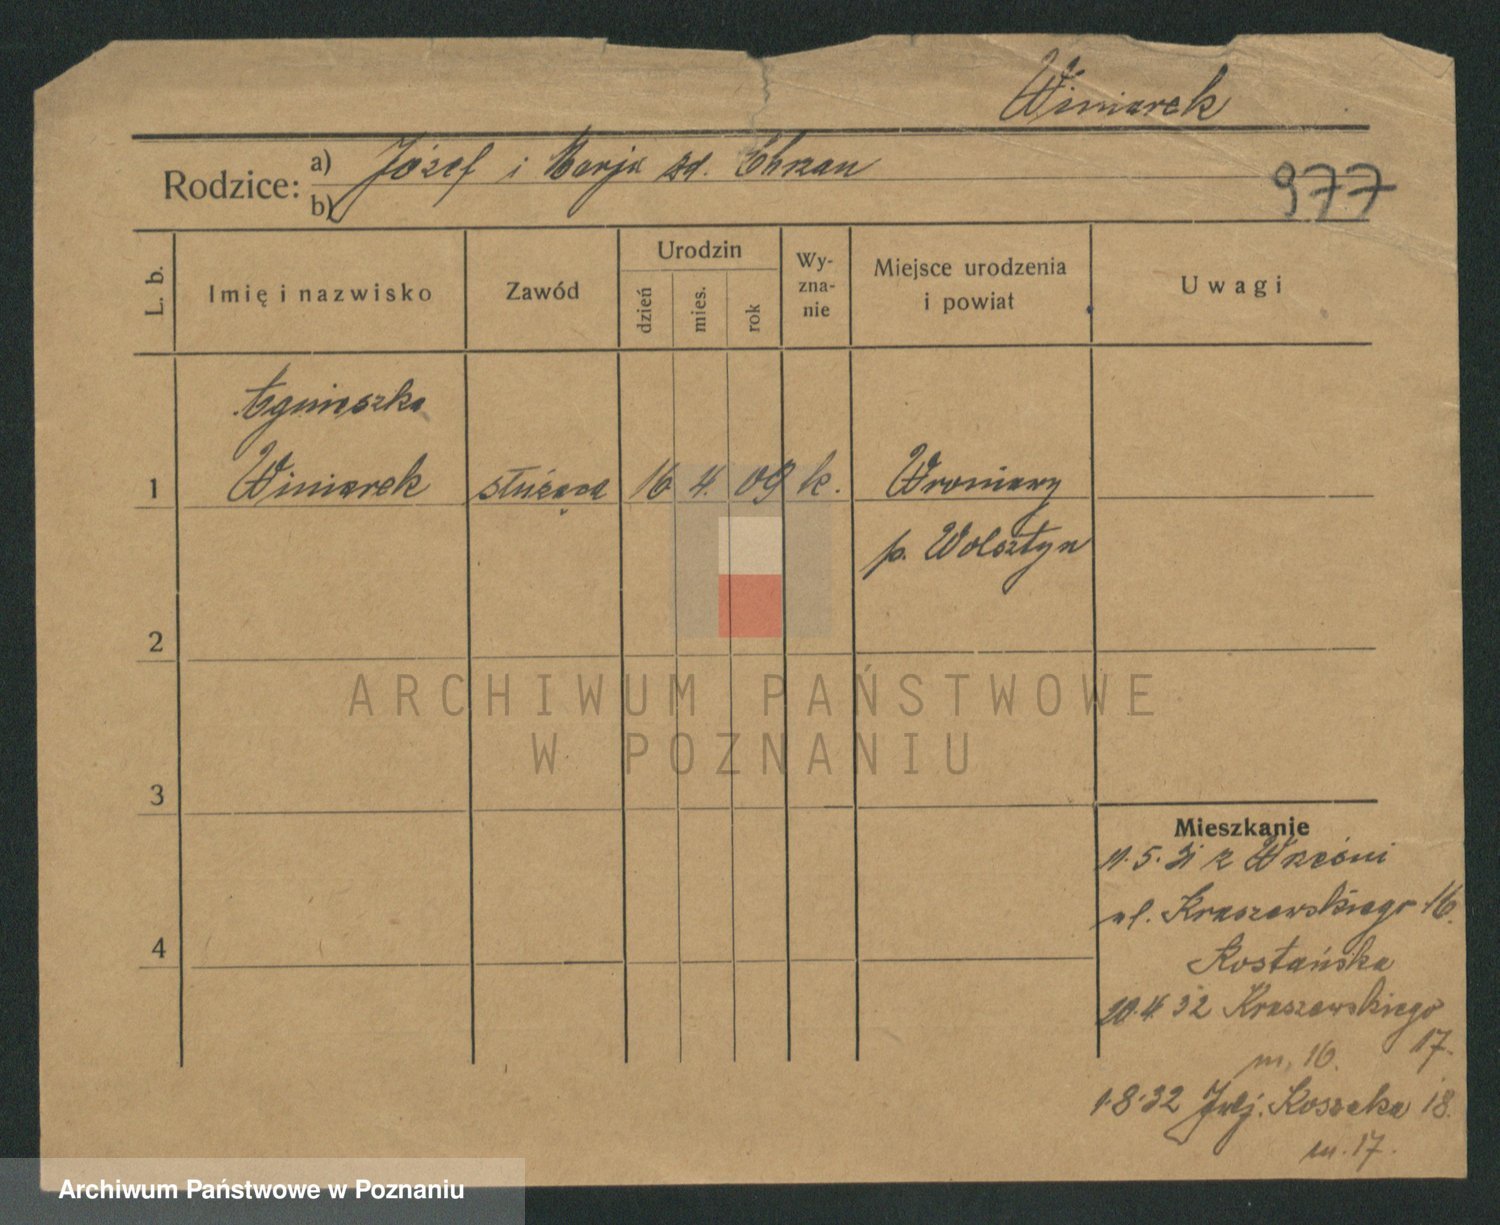 Winiarek
Rodzice: a) Józef i Marja zd. Chrzan
b)
977
L. b.
Imię i nazwisko
Zawód
Urodzin
dzień
mies.
rok
Wy-
zna-
nie
Miejsce urodzenia
i powiat
Uwagi
Agnieszka
1 Winiarek służąca 16 4. 09 k. Wroniawy
p. Wolsztyn
2
3
4
ARCHIWUM PAŃSTWOWE
W POZNANIU
Mieszkanie
11.5.31 z Wrześni
ul. Kraszewskiego 16.
20.4.32 Kraszewskiego
17.
m. 16.
1.8.32 Julj. Kossaka 18.
m. 17.
Archiwum Państwowe w Poznaniu